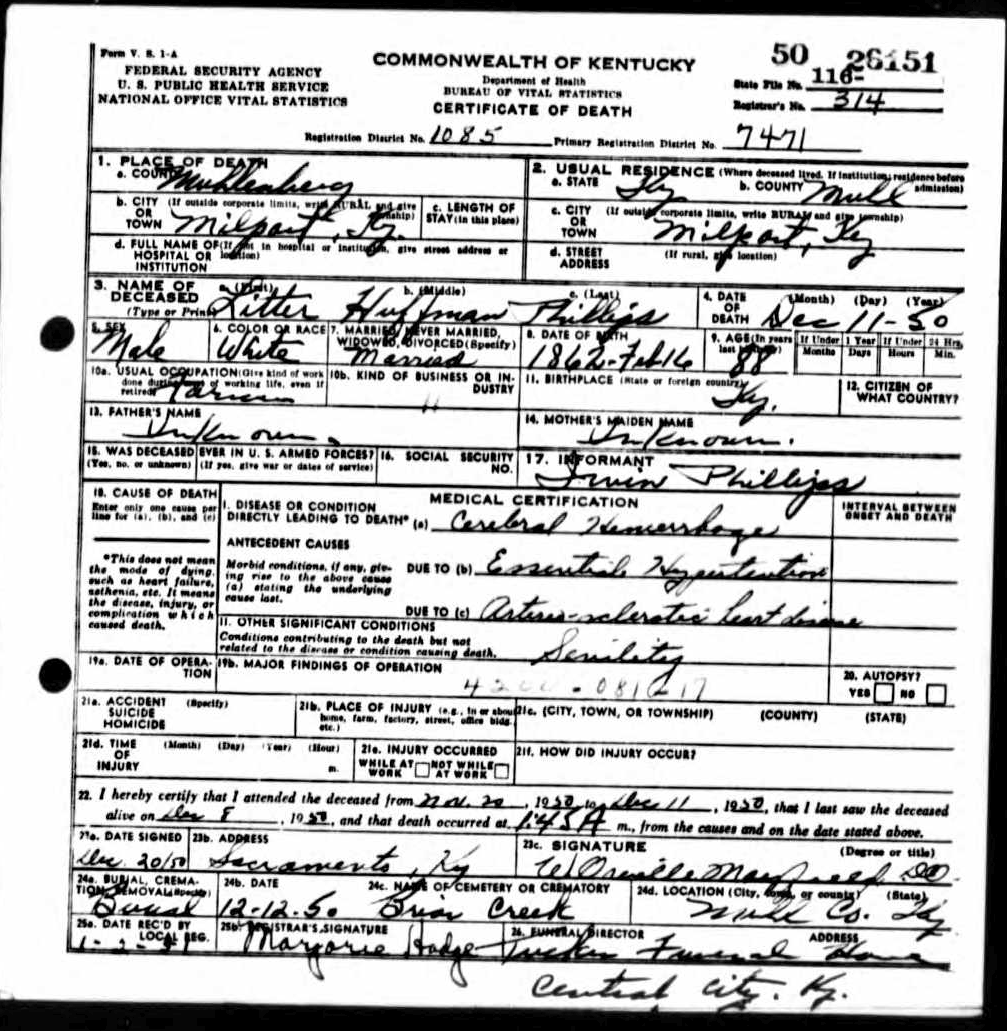 Form V. S. 1-A
FEDERAL SECURITY AGENCY
U. S. PUBLIC HEALTH SERVICE
NATIONAL OFFICE VITAL STATISTICS
COMMONWEALTH OF KENTUCKY
Department of Health
BUREAU OF VITAL STATISTICS
CERTIFICATE OF DEATH
50 26151
State File No. 116-
Registrar's No. 314
Registration District No. 1085 Primary Registration District No. 7471
1. PLACE OF DEATH
a. COUNTY Muhlenberg
2. USUAL RESIDENCE (Where deceased lived. If institution; residence before admission)
a. STATE Ky. b. COUNTY Muhl
b. CITY (If outside corporate limits, write RURAL and give township)
OR
TOWN Milport, Ky.
c. LENGTH OF
STAY (in this place)
c. CITY (If outside corporate limits, write RURAL and give township)
OR
TOWN Milport, Ky
d. FULL NAME OF (If not in hospital or institution, give street address or location)
HOSPITAL OR
INSTITUTION
d. STREET (If rural, give location)
ADDRESS
3. NAME OF DECEASED (Type or Print)
a. (First) b. (Middle) c. (Last)
Litter Huffman Phillips
4. DATE OF DEATH (Month) (Day) (Year)
Dec 11-50
5. SEX
Male
6. COLOR OR RACE
White
7. MARRIED, NEVER MARRIED, WIDOWED, DIVORCED (Specify)
Married
8. DATE OF BIRTH
1862-Feb 16
9. AGE (In years last birthday)
88
If Under 1 Year
Months Days
If Under 24 Hrs.
Hours Min.
10a. USUAL OCCUPATION (Give kind of work done during most of working life, even if retired)
Farmer
10b. KIND OF BUSINESS OR INDUSTRY
"
11. BIRTHPLACE (State or foreign country)
Ky.
12. CITIZEN OF WHAT COUNTRY?
13. FATHER'S NAME
Unknown.
14. MOTHER'S MAIDEN NAME
Unknown.
15. WAS DECEASED EVER IN U. S. ARMED FORCES?
(Yes, no, or unknown) (If yes, give war or dates of service)
16. SOCIAL SECURITY NO.
17. INFORMANT
Irvin Phillips
18. CAUSE OF DEATH
Enter only one cause per line for (a), (b), and (c)
*This does not mean the mode of dying, such as heart failure, asthenia, etc. It means the disease, injury, or complication which caused death.
MEDICAL CERTIFICATION
INTERVAL BETWEEN ONSET AND DEATH
I. DISEASE OR CONDITION
DIRECTLY LEADING TO DEATH* (a) Cerebral Hemorrhage
ANTECEDENT CAUSES
Morbid conditions, if any, giving rise to the above cause (a) stating the underlying cause last.
DUE TO (b) Essential Hypertention
DUE TO (c) Arterio-sclerotic heart disease
II. OTHER SIGNIFICANT CONDITIONS
Conditions contributing to the death but not related to the disease or condition causing death.
Senility
19a. DATE OF OPERATION
19b. MAJOR FINDINGS OF OPERATION
20. AUTOPSY?
YES NO
21a. ACCIDENT (Specify)
SUICIDE
HOMICIDE
21b. PLACE OF INJURY (e.g., in or about home, farm, factory, street, office bldg. etc.)
21c. (CITY, TOWN, OR TOWNSHIP) (COUNTY) (STATE)
21d. TIME (Month) (Day) (Year) (Hour)
OF
INJURY m.
21e. INJURY OCCURRED
WHILE AT WORK NOT WHILE AT WORK
21f. HOW DID INJURY OCCUR?
22. I hereby certify that I attended the deceased from Nov. 20, 1950 to Dec 11, 1950, that I last saw the deceased
alive on Dec 8, 1950, and that death occurred at 1:45 A m., from the causes and on the date stated above.
23a. DATE SIGNED
Dec. 20/50
23b. ADDRESS
Sacramento, Ky
23c. SIGNATURE (Degree or title)
W Orville DO.
24a. BURIAL, CREMATION, REMOVAL (Specify)
Burial
24b. DATE
12-12-50
24c. NAME OF CEMETERY OR CREMATORY
Briar Creek
24d. LOCATION (City, town, or county) (State)
Muhl Co. Ky
25a. DATE REC'D BY LOCAL REG.
1-2-51
25b. REGISTRAR'S SIGNATURE
Marjorie Hodge
26. FUNERAL DIRECTOR ADDRESS
Tucker Funeral Home
Central City. Ky.